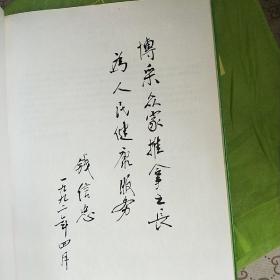 博采众家推拿之长
为人民健康服务
钱信忠
一九九二年四月